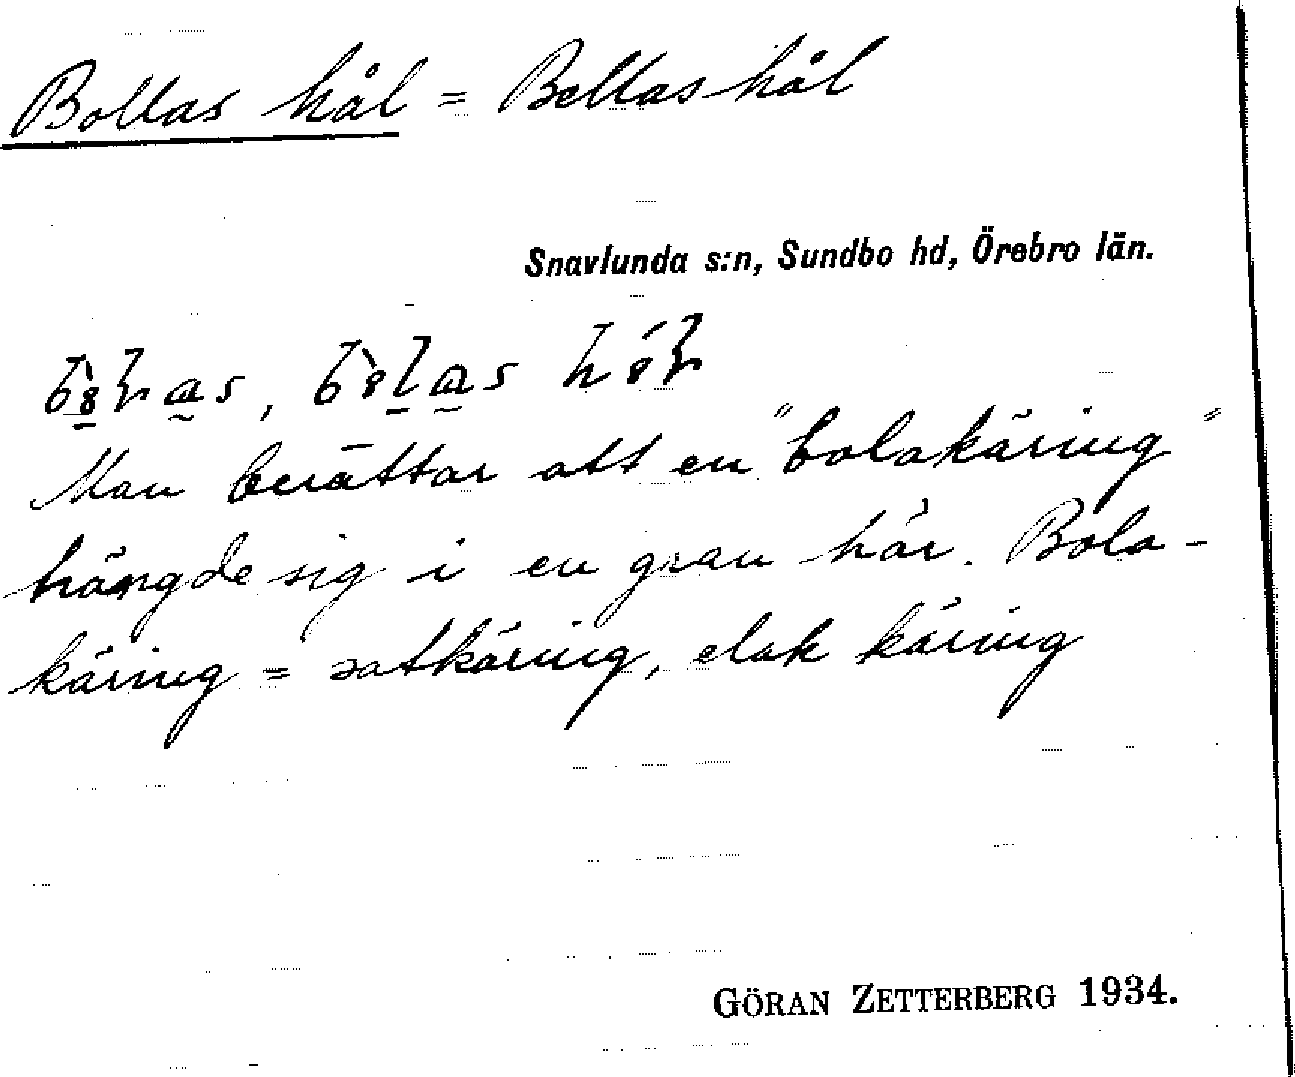 Bollas hål = Bellas hål
Snavlunda s:n, Sundbo hd, Örebro län.
Man berättar att en "bolakäring"
hängde sig i en gran här. Bola-
käring = satkäring, elak käring
GÖRAN ZETTERBERG 1934.